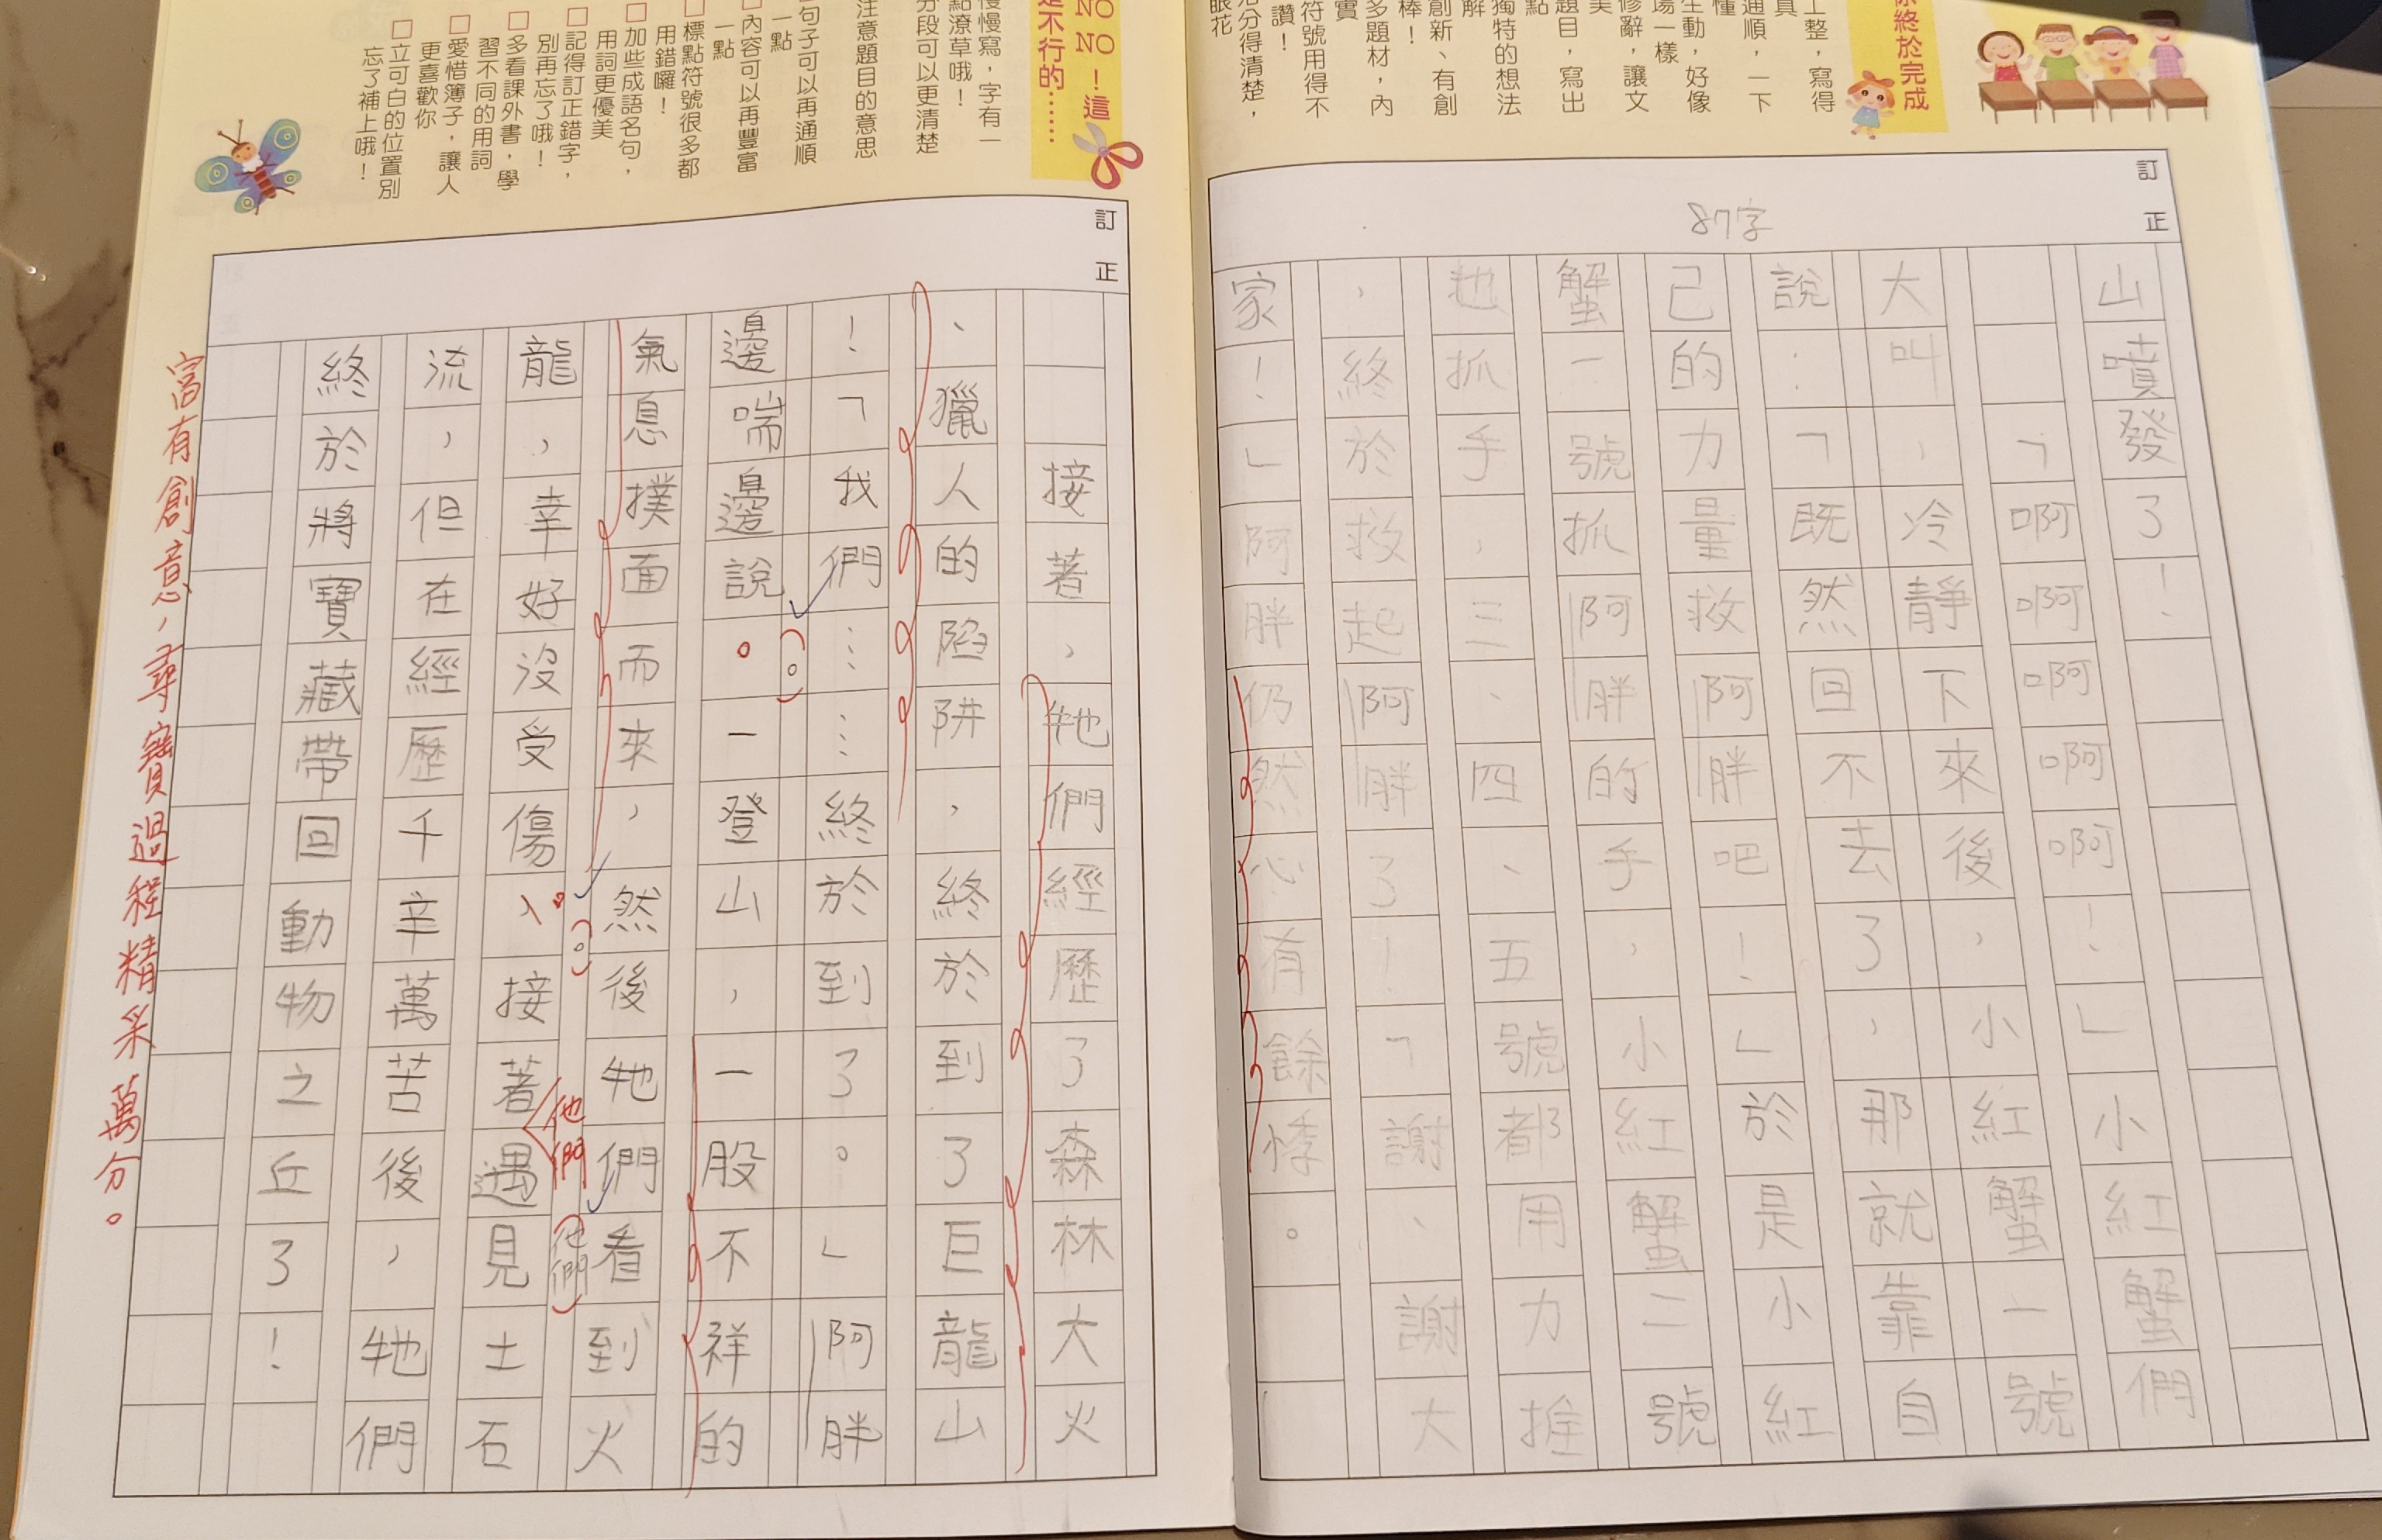 你終於完成
工整,寫得
真
通順,一下
懂
生動,好像
場一樣
修辭,讓文
美
題目,寫出
點
獨特的想法
解
創新、有創
棒!
多題材,內
實
符號用得不
讚!
落分得清楚,
眼花
訂正
87字
山噴發了!
「啊啊啊啊啊!」小紅蟹們
大叫,冷靜下來後,小紅蟹一號
說:「既然回不去了,那就靠自
己的力量救阿胖吧!」於是小紅
蟹一號抓阿胖的手,小紅蟹二號
也抓手,三、四、五號都用力推
,終於救起阿胖了!「謝、謝大
家!」阿胖仍然心有餘悸。
NO NO!這
是不行的……
慢慢寫,字有一
點潦草哦!
分段可以更清楚
注意題目的意思
句子可以再通順
一點
□內容可以再豐富
一點
□標點符號很多都
用錯囉!
□加些成語名句,
用詞更優美
□記得訂正錯字,
別再忘了哦!
□多看課外書,學
習不同的用詞
□愛惜簿子,讓人
更喜歡你
□立可白的位置別
忘了補上哦!
訂正
接著,牠們經歷了森林大火
、獵人的陷阱,終於到了巨龍山
!「我們……終於到了。」阿胖
邊喘邊說。一登山,一股不祥的
(。)
氣息撲面而來,然後牠們看到火
(。)
他們
(他們)
龍,幸好沒受傷。接著遇見土石
流,但在經歷千辛萬苦後,牠們
終於將寶藏帶回動物之丘了!
富有創意,尋寶過程精采萬分。